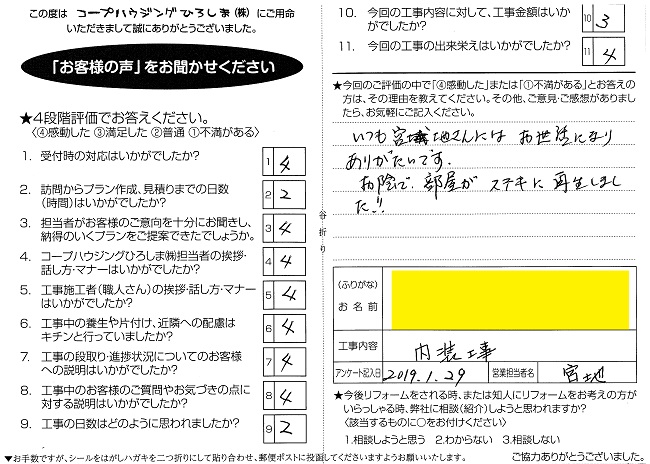 この度は コープハウジングひろしま(株) にご用命
いただきまして誠にありがとうございました。
「お客様の声」をお聞かせください
★4段階評価でお答えください。
〈④感動した ③満足した ②普通 ①不満がある〉
1. 受付時の対応はいかがでしたか? 1 4
2. 訪問からプラン作成、見積りまでの日数
(時間)はいかがでしたか? 2 2
3. 担当者がお客様のご意向を十分にお聞きし、
納得のいくプランをご提案できたでしょうか。 3 4
4. コープハウジングひろしま㈱担当者の挨拶・
話し方・マナーはいかがでしたか? 4 4
5. 工事施工者(職人さん)の挨拶・話し方・マナー
はいかがでしたか? 5 4
6. 工事中の養生や片付け、近隣への配慮は
キチンと行っていましたか? 6 4
7. 工事の段取り・進捗状況についてのお客様
への説明はいかがでしたか? 7 4
8. 工事中のお客様のご質問やお気づきの点に
対する説明はいかがでしたか? 8 4
9. 工事の日数はどのように思われましたか? 9 2
▼お手数ですが、シールをはがしハガキを二つ折りにして貼り合わせ、郵便ポストに投函してくださいますようお願いいたします。
谷折り
10. 今回の工事内容に対して、工事金額はいか
がでしたか? 10 3
11. 今回の工事の出来栄えはいかがでしたか? 11 4
★今回のご評価の中で「④感動した」または「①不満がある」とお答えの
方は、その理由を教えてください。その他、ご意見・ご感想がありました
ら、お気軽にご記入ください。
いつも宮地さんには お世話になり
ありがたいです。
お陰で 部屋が ステキに 再生しまし
た!!
(ふりがな)
お名前
工事内容 内装工事
アンケート記入日 2019.1.29 営業担当者名 宮地
★今後リフォームをされる時、または知人にリフォームをお考えの方が
いらっしゃる時、弊社に相談(紹介)しようと思われますか?
〈該当するものに○をお付けください〉
1.相談しようと思う 2.わからない 3.相談しない
ご協力ありがとうございました。